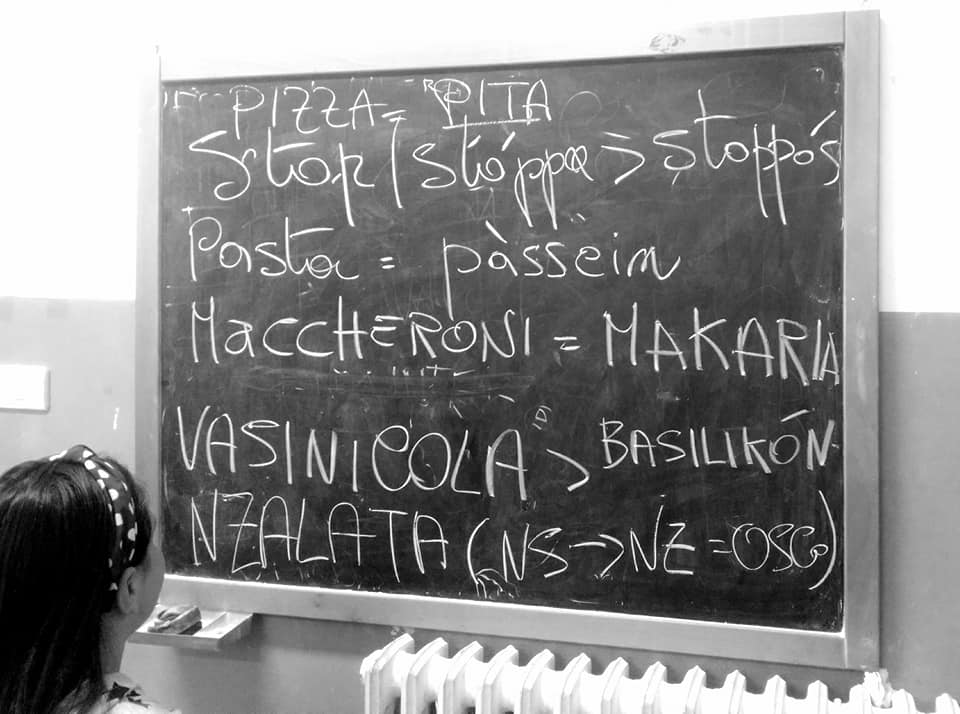 PIZZA = PITA
Stop / stóppa > stoppós
Pasta = pàssein
MaccHERONI = MAKARIA
VASINICOLA > BASILIKÓN
NZALATA (NS → NZ = OSCO)